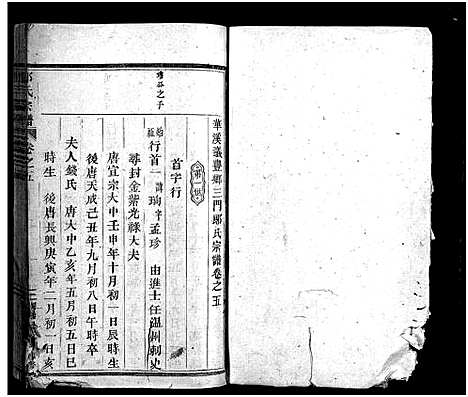 華溪義豐鄉三門郎氏宗譜卷之五
第一世
首字行
珍公之子
始祖 行首一 諱珣 字孟珍 由進士任溫州刺史
尋封金紫光祿大夫
唐宣宗大中壬申年十月初一日辰時生
後唐天成己丑年九月初八日午時卒
夫人錢氏 唐大中乙亥年五月初五日巳
時生 後唐長興庚寅年二月初一日亥
氏宗譜 卷之五